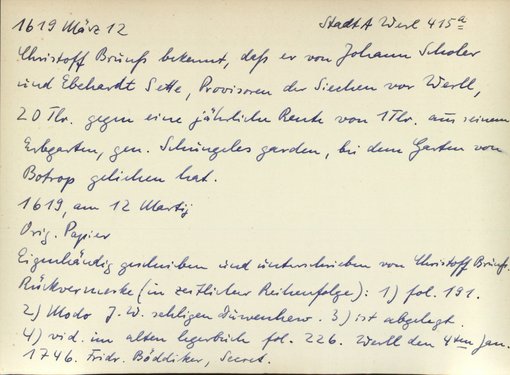 1619 März 12 StadtA Werl 415a
Christoff Brünß bekennt, daß er von Johann Scholer
und Ebehardt Sette, Provisoren der Siechen vor Werll,
20 Tlr. gegen eine jährliche Rente von 1 Tlr. aus seinem
Erbgarten, gen. Schüngeles garden, bei dem Garten von
Botrop geliehen hat.
1619, am 12 Martij
Orig. Papier
Eigenhändig geschrieben und unterschrieben von Christoff Brünß.
Rückvermerke (in zeitlicher Reihenfolge): 1) fol. 191.
2) Modo J. W. sehligen 3) ist abgelegt.
4) vid. im alten legerbuch fol. 226. Werll den 4ten Jan.
1746. Fridr. Böddiker, Secret.